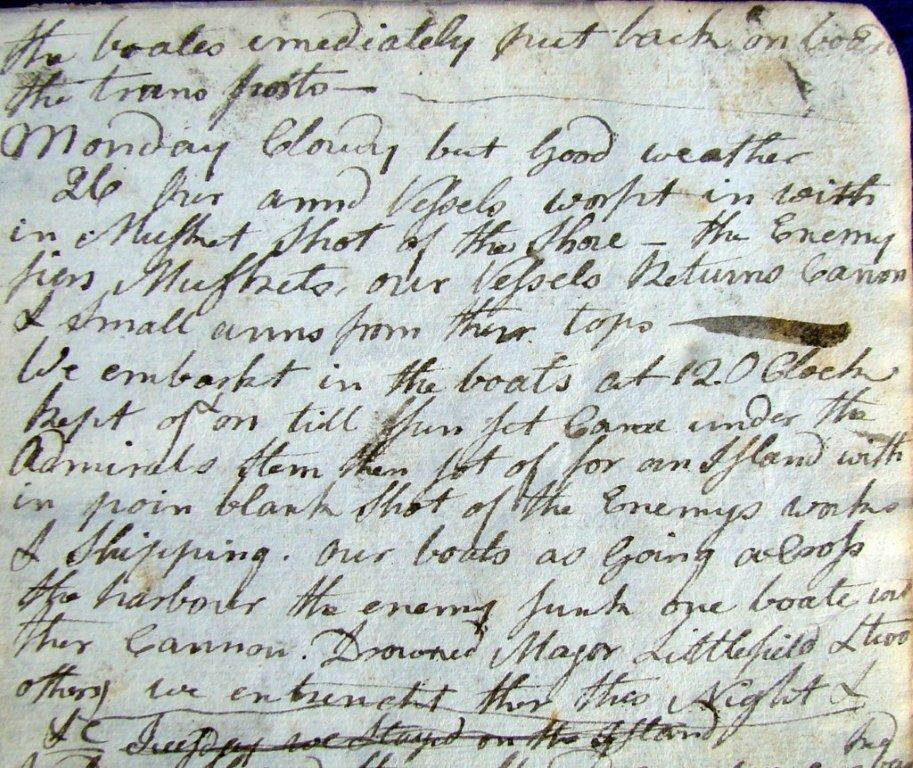 the boates imediately put back on boar
the transports —
Monday Clowdy but Good weather
26 Our armd Vessels worpt in with
in Musket Shot of the Shore — the Enemy
fiers Muskets, our Vessels Returns Canon
& Small arms from ther tops —
We embarkt in the boats at 12 O Clock
kept of & on till Sun set Came under the
Admirals Stern then sot of for an Island with
in poin blank Shot of the Enemys works
& Shipping. our boats as Going aCross
the harbour the enemy sunk one boate
ther Cannon. Drowned Major Littlefield & two
others we entrencht ther this Night &
&C Tuesday we Stayd on the Island